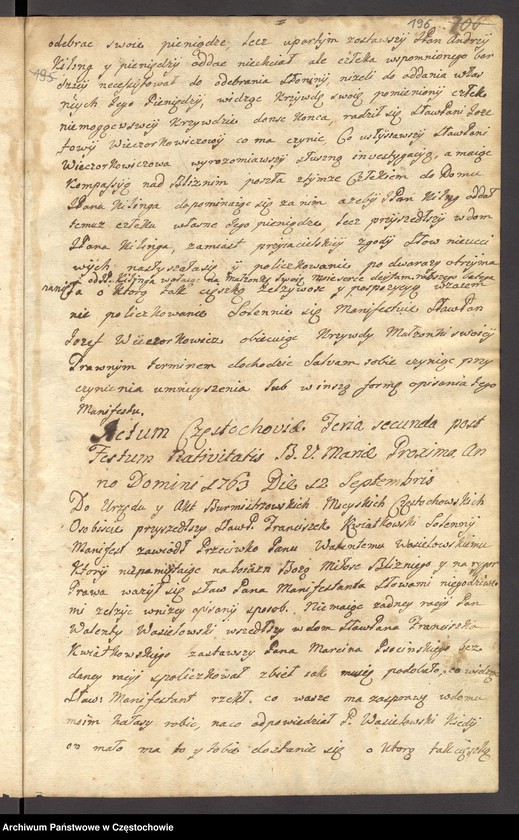 196 106
odebrac swoie pieniądze, lecz upartym zostawszy JPan Andrzey
Kiling y pieniędzy oddac niechciał ale człeka wspomnionego bar
195
dziey necessytował do odebrania Słoniny, nizeli do oddania włas
nych Jego Pieniędzy, widząc Krzywdę swoię pomieniony człek
niemogący Krzywdzie donsc Konca, radził się Sławetney Joze
fowy Wieczorkowiczowy co ma czynic, Co usłyszawszy Sławetna
Wieczorkowiczowa wyrozomiawszy słuszną investygacyią, a maiąc
Kompassyą nad Bliznim poszła zTymze Człekiem do Domu
JPana Kilinga dopominaiąc się za nim azeby JPan Kiling oddał
temuz człeku własne Jego pieniądze lecz przyszedłszy w dom
JPana Kilinga, zamiast przyiacielskiey zgody Słow nieucci
wych nasłyszała się y policzkowanie po dwarazy otrzyma
ła o Ktorą tak cięszką zelzywosc y pospozycyą wzaiem
nie policzkowane Solennie się Manifestuie Sławetny Pan
Jozef Wieczorkowicz obiecuiąc Krzywdy Małzonki swoiey
Prawnym terminem dochodzic Salvam sobie czyniąc przy
czynienia umnieyszenia lub w inszą formę opisania tego
Manifestu.
Actum Częstochoviæ Feria secunda post
Festum Nativitatis B. V. Mariæ Proxima An
no Domini 1763 Die 12 Septembris
Do Urzędu y Akt Burmistrzowskich Mieyskich Częstochowskich
Osobiscie przyszedłszy Sław: P. Franciszek Kwiatkowski Solenny
Manifest zawiodł Przeciwko Panu Walentemu Wasielowskiemu
Ktory niepamiętaiąc na boiazn Bozą Miłosc Blizniego y na rygor
Prawa wazył się Sław Pana Manifestanta Słowami niegodziwe
mi zelzyc wnizey opisany sposob. Nie maiąc zadney racyi Pan
Walenty Wasielowski wszedłszy w dom Sław: Pana Franciszka
Kwiatkowskiego zastawszy Pana Marcina Psocinskiego bez
daney racyi spoliczkował zbił iak mu się podobało, co widząc
Sław: Manifestant rzekł. co wasze ma za sprawę w domu
moim hałasy robic, na co odpowiedział P. Wasielowski Kiedy
on mało ma to y tobie dostanie się o Ktorą tak cięszką
Archiwum Państwowe w Częstochowie